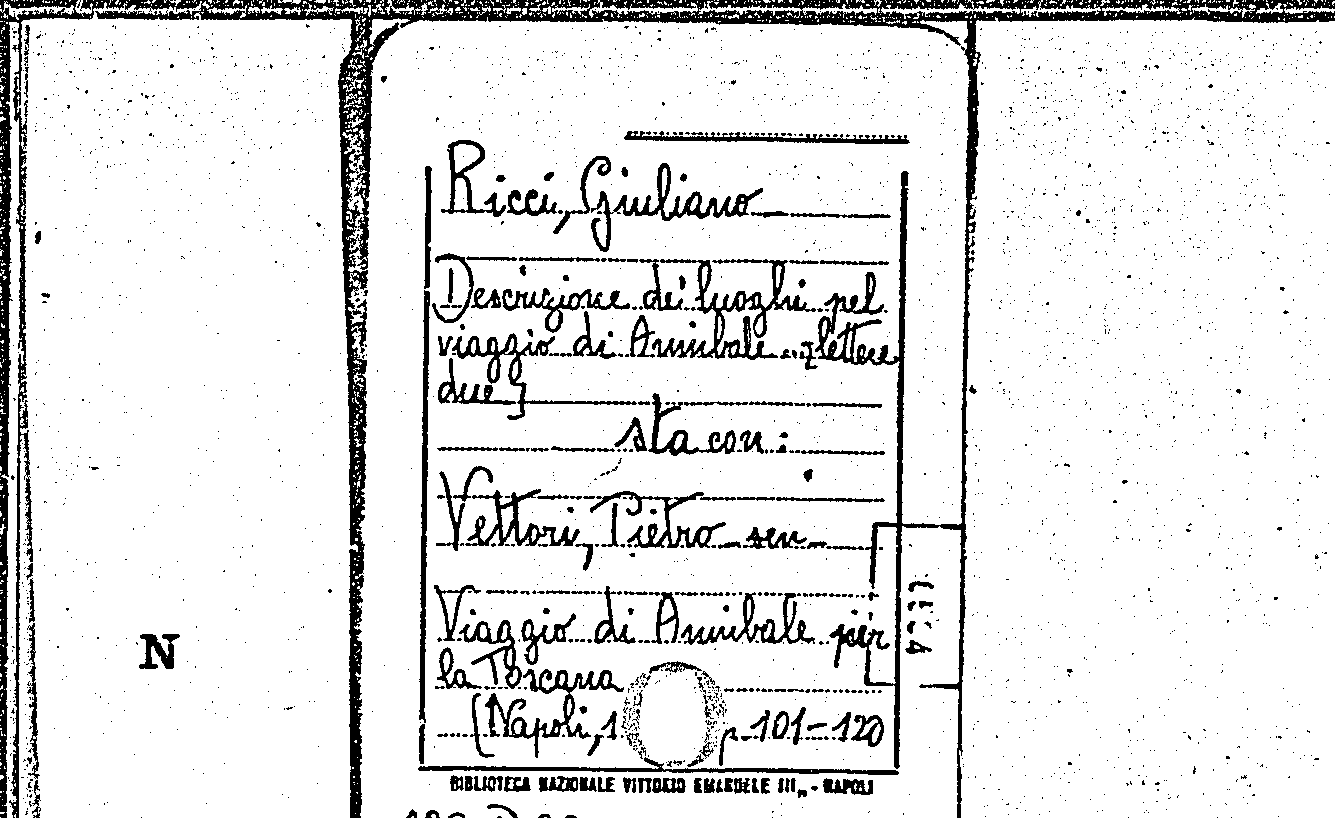 Ricci, Giuliano
Descrizione dei luoghi pel
viaggio di Annibale ... [lettere
due]
sta con:
Vettori, Pietro sen
Viaggio di Annibale per
la Toscana
(Napoli, 1 p. 101-120
BIBLIOTECA NAZIONALE VITTORIO EMANUELE III„ - NAPOLI
N